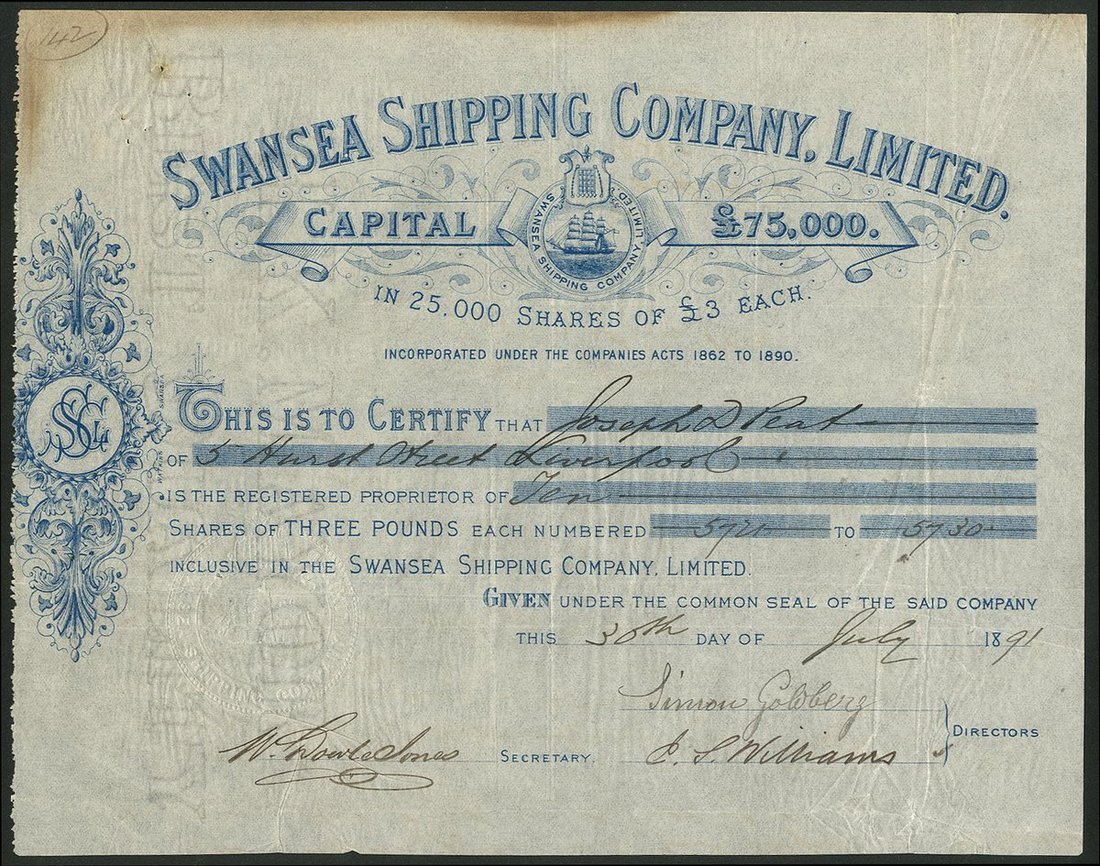 142
SWANSEA SHIPPING COMPANY, LIMITED.
CAPITAL £75,000.
SWANSEA SHIPPING COMPANY, LIMITED.
IN 25,000 SHARES OF £3 EACH.
INCORPORATED UNDER THE COMPANIES ACTS 1862 TO 1890.
THIS IS TO CERTIFY THAT Joseph D Peat
OF 5 Hurst Street Liverpool
IS THE REGISTERED PROPRIETOR OF Ten
SHARES OF THREE POUNDS EACH NUMBERED 5721 TO 5730
INCLUSIVE IN THE SWANSEA SHIPPING COMPANY, LIMITED.
GIVEN UNDER THE COMMON SEAL OF THE SAID COMPANY
THIS 30th DAY OF July 1891
Simon Goldberg
W. Jones SECRETARY. S. Williams DIRECTORS